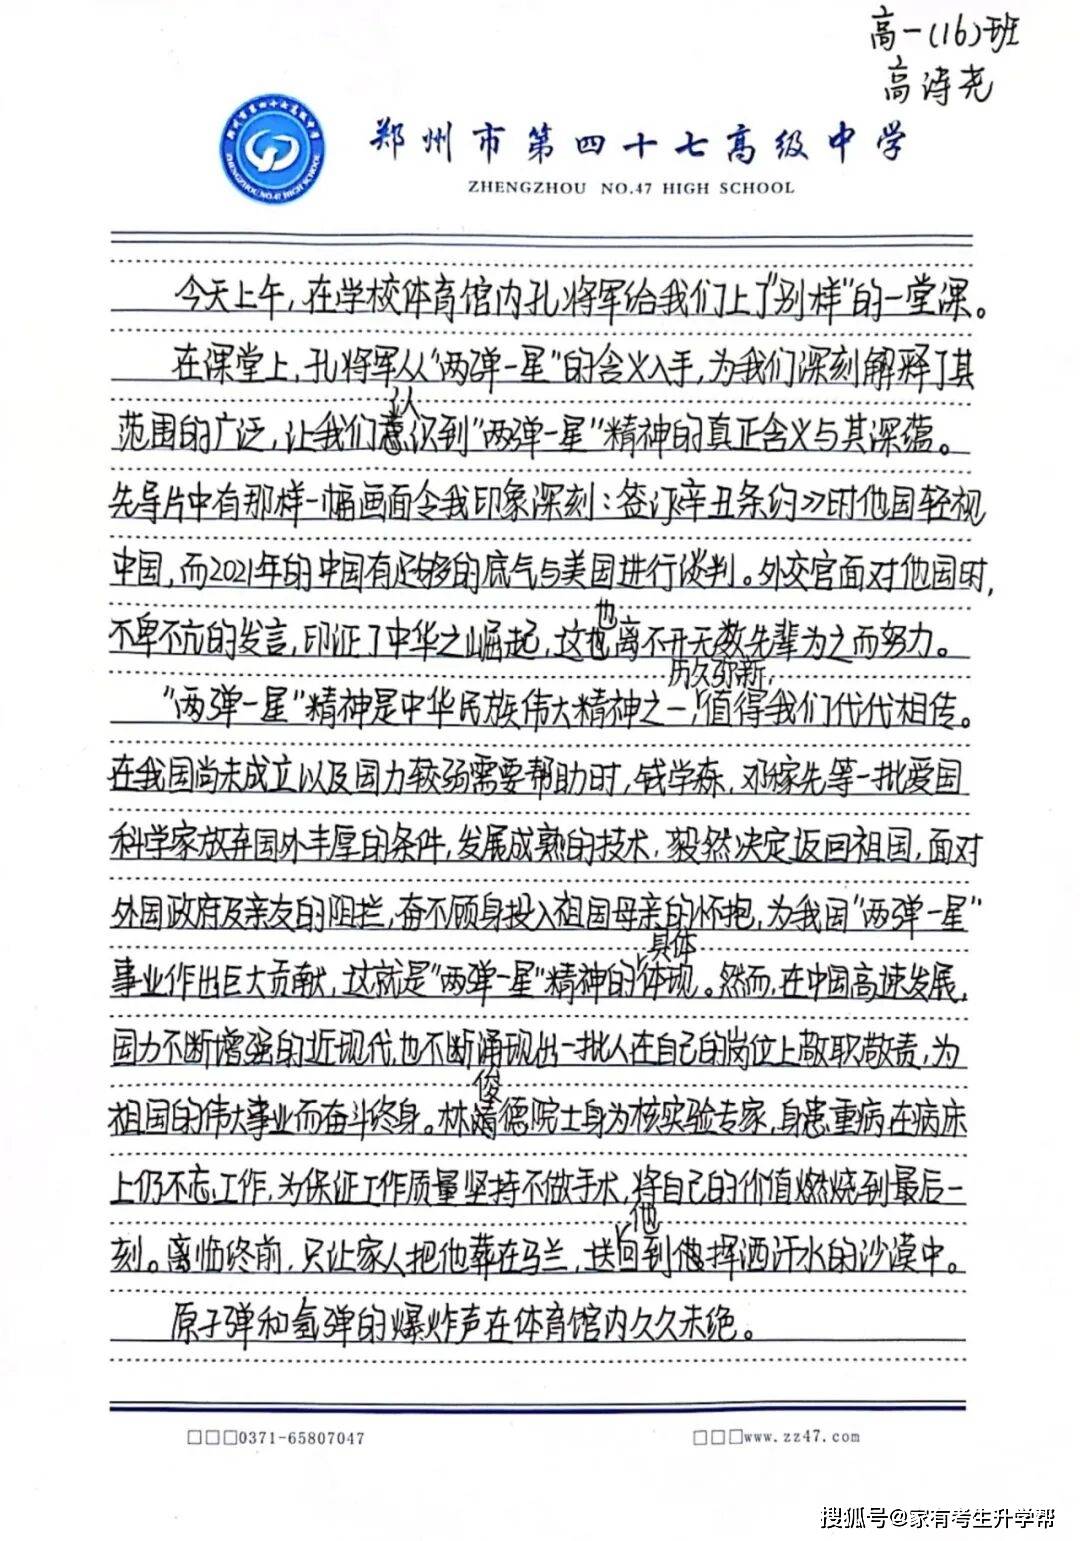 高一(16)班
高涛尧
郑州市第四十七高级中学
ZHENGZHOU NO.47 HIGH SCHOOL
今天上午，在学校体育馆内孔将军给我们上了“别样”的一堂课。
在课堂上，孔将军从“两弹一星”的含义入手，为我们深刻解释了其
范围的广泛，让我们认识到“两弹一星”精神的真正含义与其深蕴。
先导片中有那样一幅画面令我印象深刻：签订《辛丑条约》时他国轻视
中国，而2021年的中国有足够的底气与美国进行谈判。外交官面对他国时，
不卑不亢的发言，印证了中华之崛起，这也离不开无数先辈为之而努力。
“两弹一星”精神是中华民族伟大精神之一，历久弥新，值得我们代代相传。
在我国尚未成立以及国力较弱需要帮助时，钱学森，邓稼先等一批爱国
科学家放弃国外丰厚的条件，发展成熟的技术，毅然决定返回祖国，面对
外国政府及亲友的阻拦，奋不顾身投入祖国母亲的怀抱，为我国“两弹一星”
事业作出巨大贡献，这就是“两弹一星”精神的具体体现。然而，在中国高速发展，
国力不断增强的近现代，也不断涌现出一批人在自己的岗位上敬职敬责，为
祖国的伟大事业而奋斗终身。林俊德院士身为核实验专家，身患重病在病床
上仍不忘工作，为保证工作质量坚持不做手术，将自己的价值燃烧到最后一
刻。离临终前，只让家人把他葬在马兰，送他回到他挥洒汗水的沙漠中。
原子弹和氢弹的爆炸声在体育馆内久久未绝。
□□□0371-65807047
□□□www.zz47.com
搜狐号@家有考生升学帮